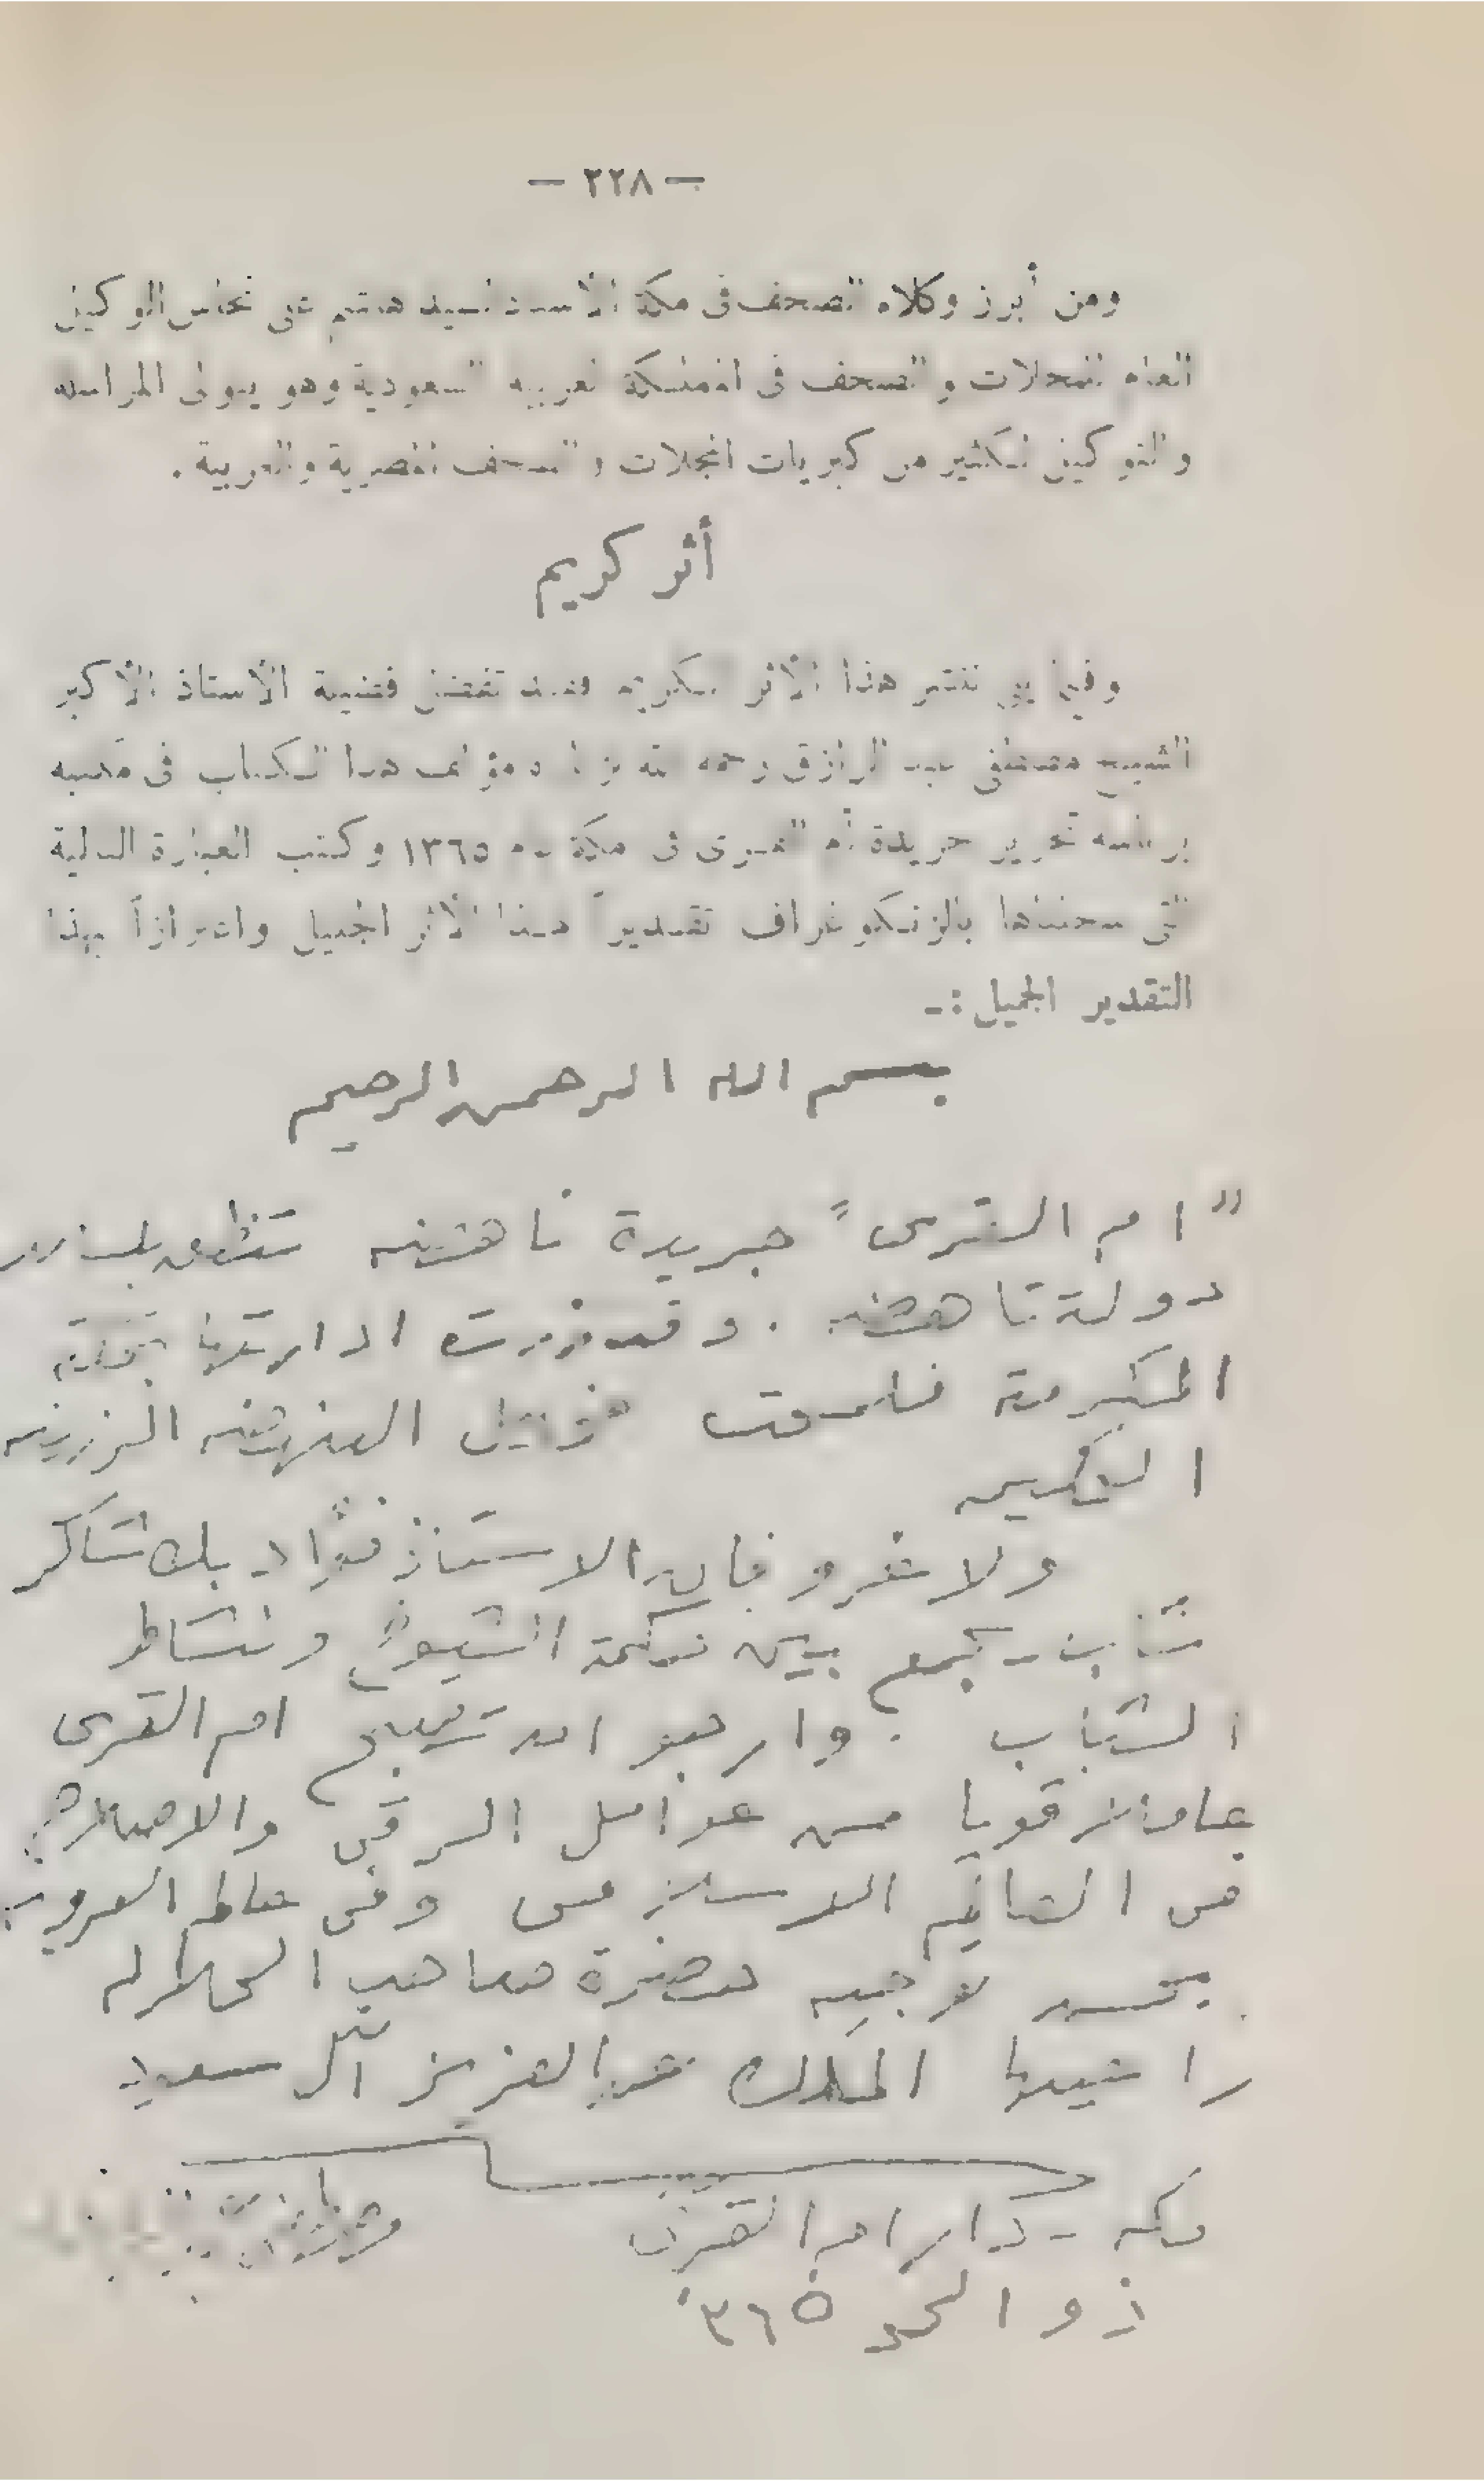 — ٢٢٨ —
ومن أبرز وكلاء الصحف فى مكة الأستاذ السيد هاشم على نحاس الوكيل
العام للمجلات والصحف فى المملكة العربية السعودية وهو يتولى المراسلة
والتوكيل لكثير من كبريات المجلات والصحف المصرية والعربية .
أثر كريم
وفيما يلى ننشر هذا الأثر الكريم فقد تفضل فضيلة الأستاذ الأكبر
الشيخ مصطفى عبد الرازق رحمه الله مؤلف هذا الكتاب فى مكتبه
برئاسة تحرير جريدة أم القرى فى مكة ١٣٦٥ وكتب العبارة التالية
التى سجلناها بالزنكوغراف تقديراً لهذا الأثر الجميل واعتزازاً بهذا
التقدير الجميل :ـ
بسم الله الرحمن الرحيم
"ام القرى" جريدة ناهضة تنطق بلسان
دولة ناهضة . وقد زرت ادارتها بمكة
المكرمة النهضة الرزينة
الكريمة
ولا غرو فان الاستاذ فؤاد بك شاكر
شاب يجمع بين حكمة الشيوخ ونشاط
الشباب . وارجو ان تصبح ام القرى
عاملا قويا من عوامل الرقى والاصلاح
فى العالم الاسلامى وفى عالم العروبة
توجيه حضرة صاحب الجلالة
راعيها الملك عبد العزيز آل سعود
مكة - دار ام القرى
ذو الحجة ١٣٦٥